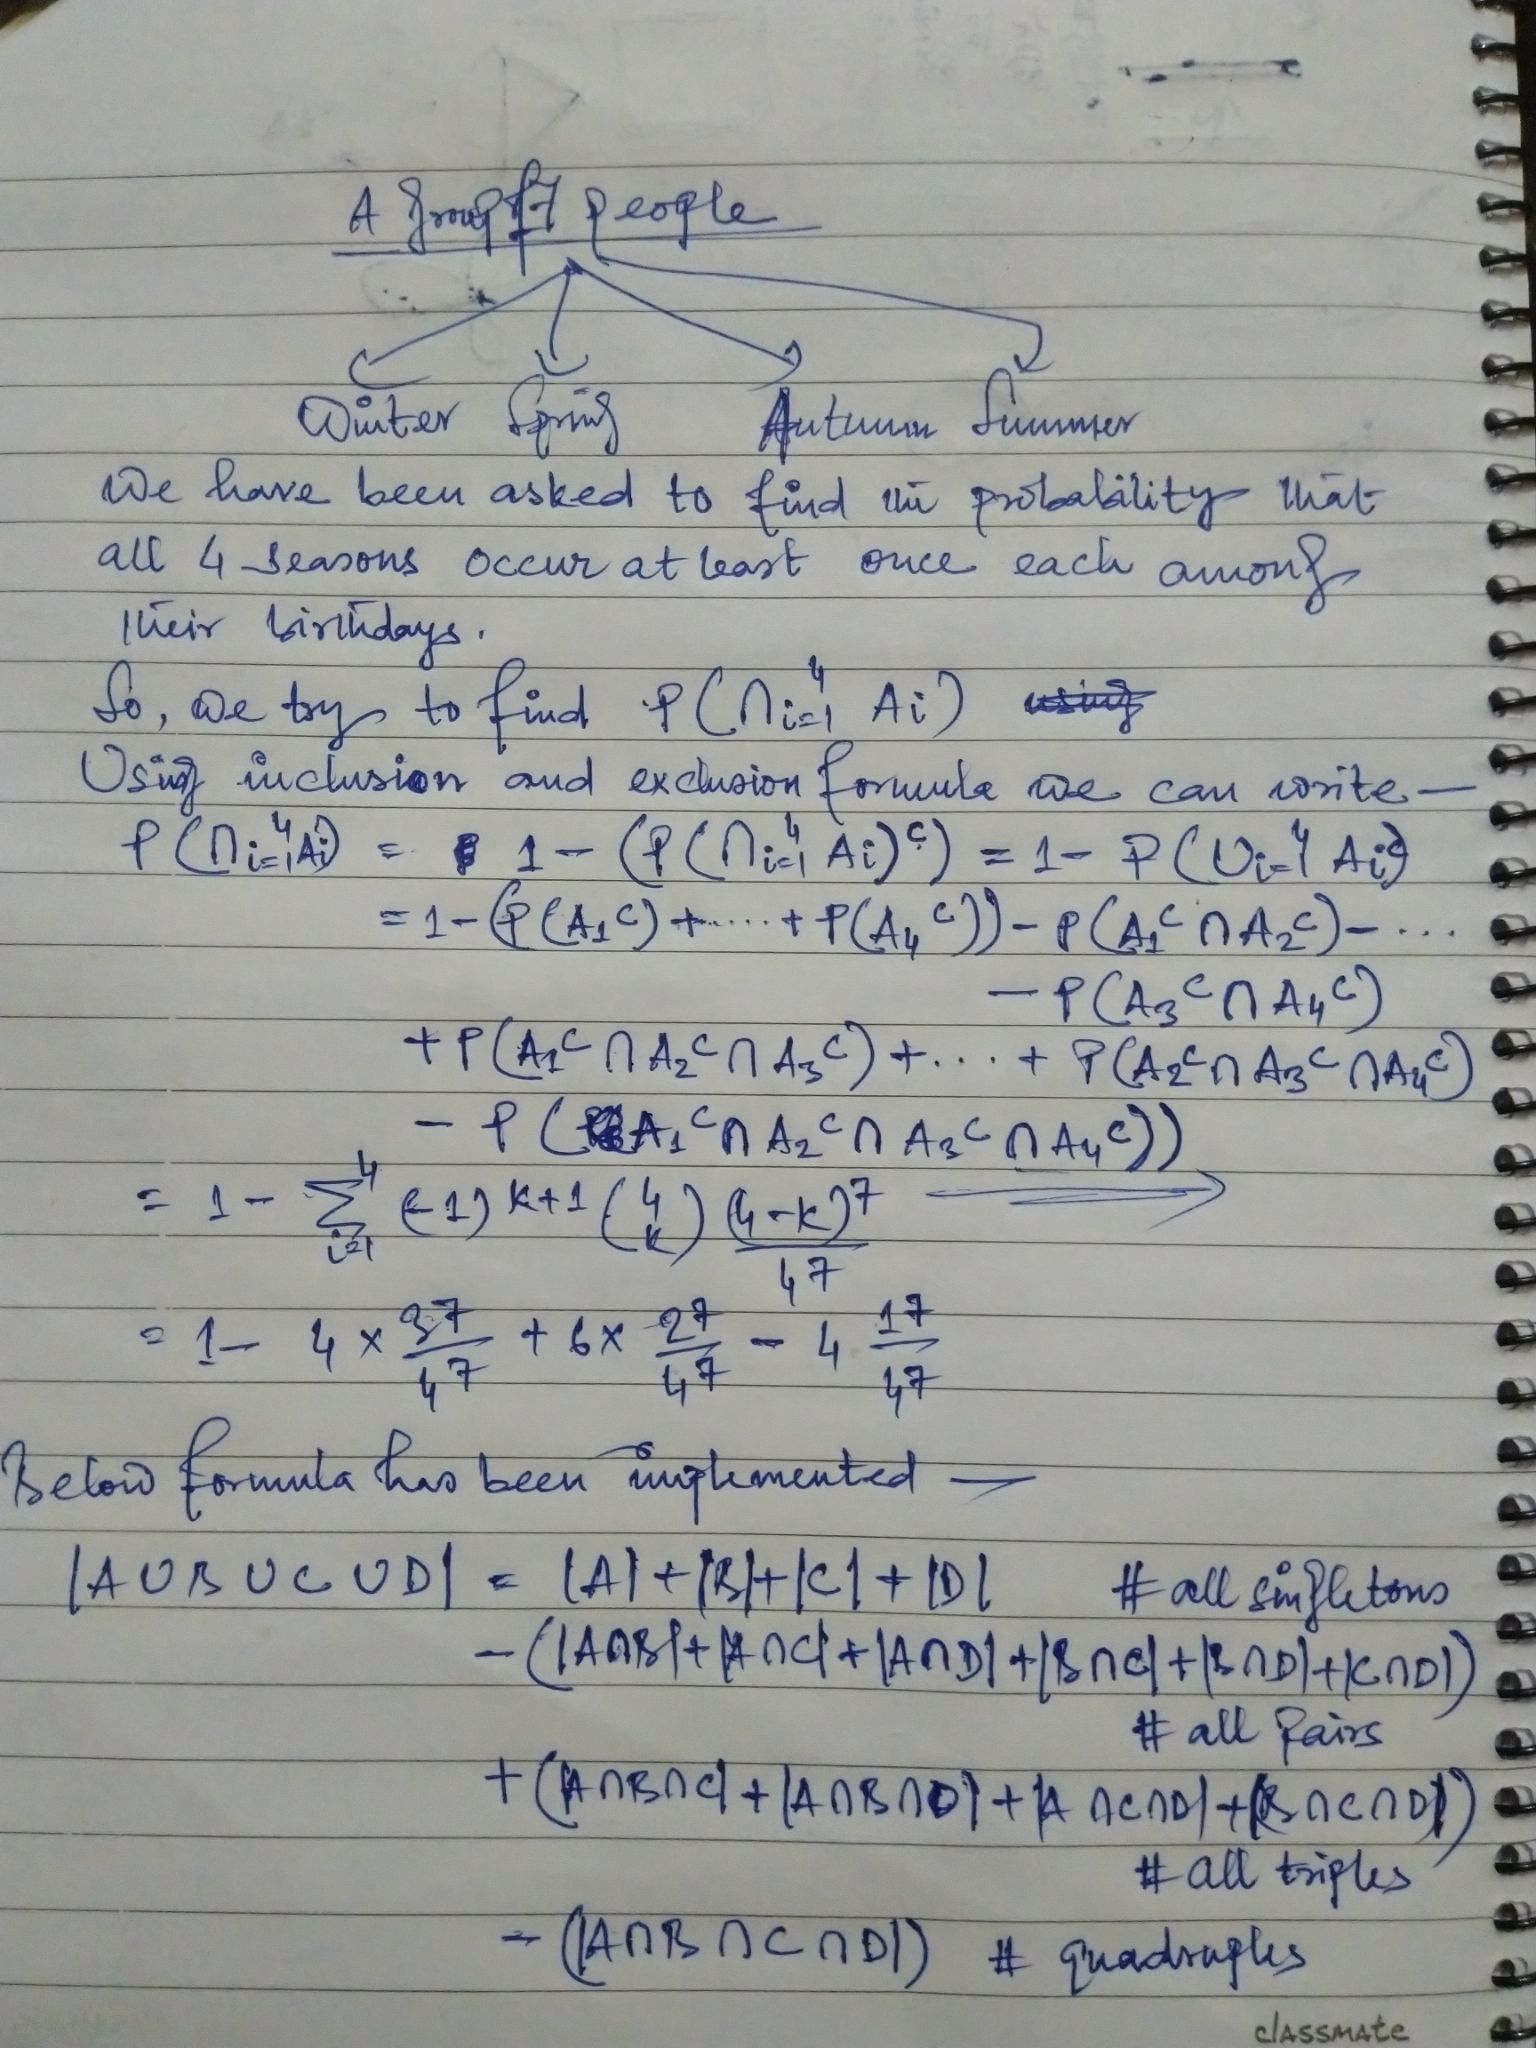 A group of 7 people
Winter Spring Autumn Summer
We have been asked to find the probability that
all 4 seasons occur at least once each among
their birthdays.
So, we try to find P(∩i=1^4 Ai) using
Using inclusion and exclusion formula we can write —
P(∩i=1^4 Ai) = 1 - (P(∩i=1^4 Ai)^c) = 1 - P(∪i=1^4 Ai^c)
= 1 - (P(A1^c) + ..... + P(A4^c)) - P(A1^c ∩ A2^c) - ...
- P(A3^c ∩ A4^c)
+ P(A1^c ∩ A2^c ∩ A3^c) + .... + P(A2^c ∩ A3^c ∩ A4^c)
- P(A1^c ∩ A2^c ∩ A3^c ∩ A4^c))
= 1 - ∑i=1^4 (-1)^k+1 (4 k) (4-k)^7 / 4^7 →
= 1 - 4 × 3^7/4^7 + 6 × 2^7/4^7 - 4 1^7/4^7
Below formula has been implemented —
|A ∪ B ∪ C ∪ D| = |A| + |B| + |C| + |D| # all singletons
- (|A∩B| + |A∩C| + |A∩D| + |B∩C| + |B∩D| + |C∩D|)
# all pairs
+ (|A∩B∩C| + |A∩B∩D| + |A∩C∩D| + |B∩C∩D|)
# all triples
- (|A∩B∩C∩D|) # quadruples
classmate